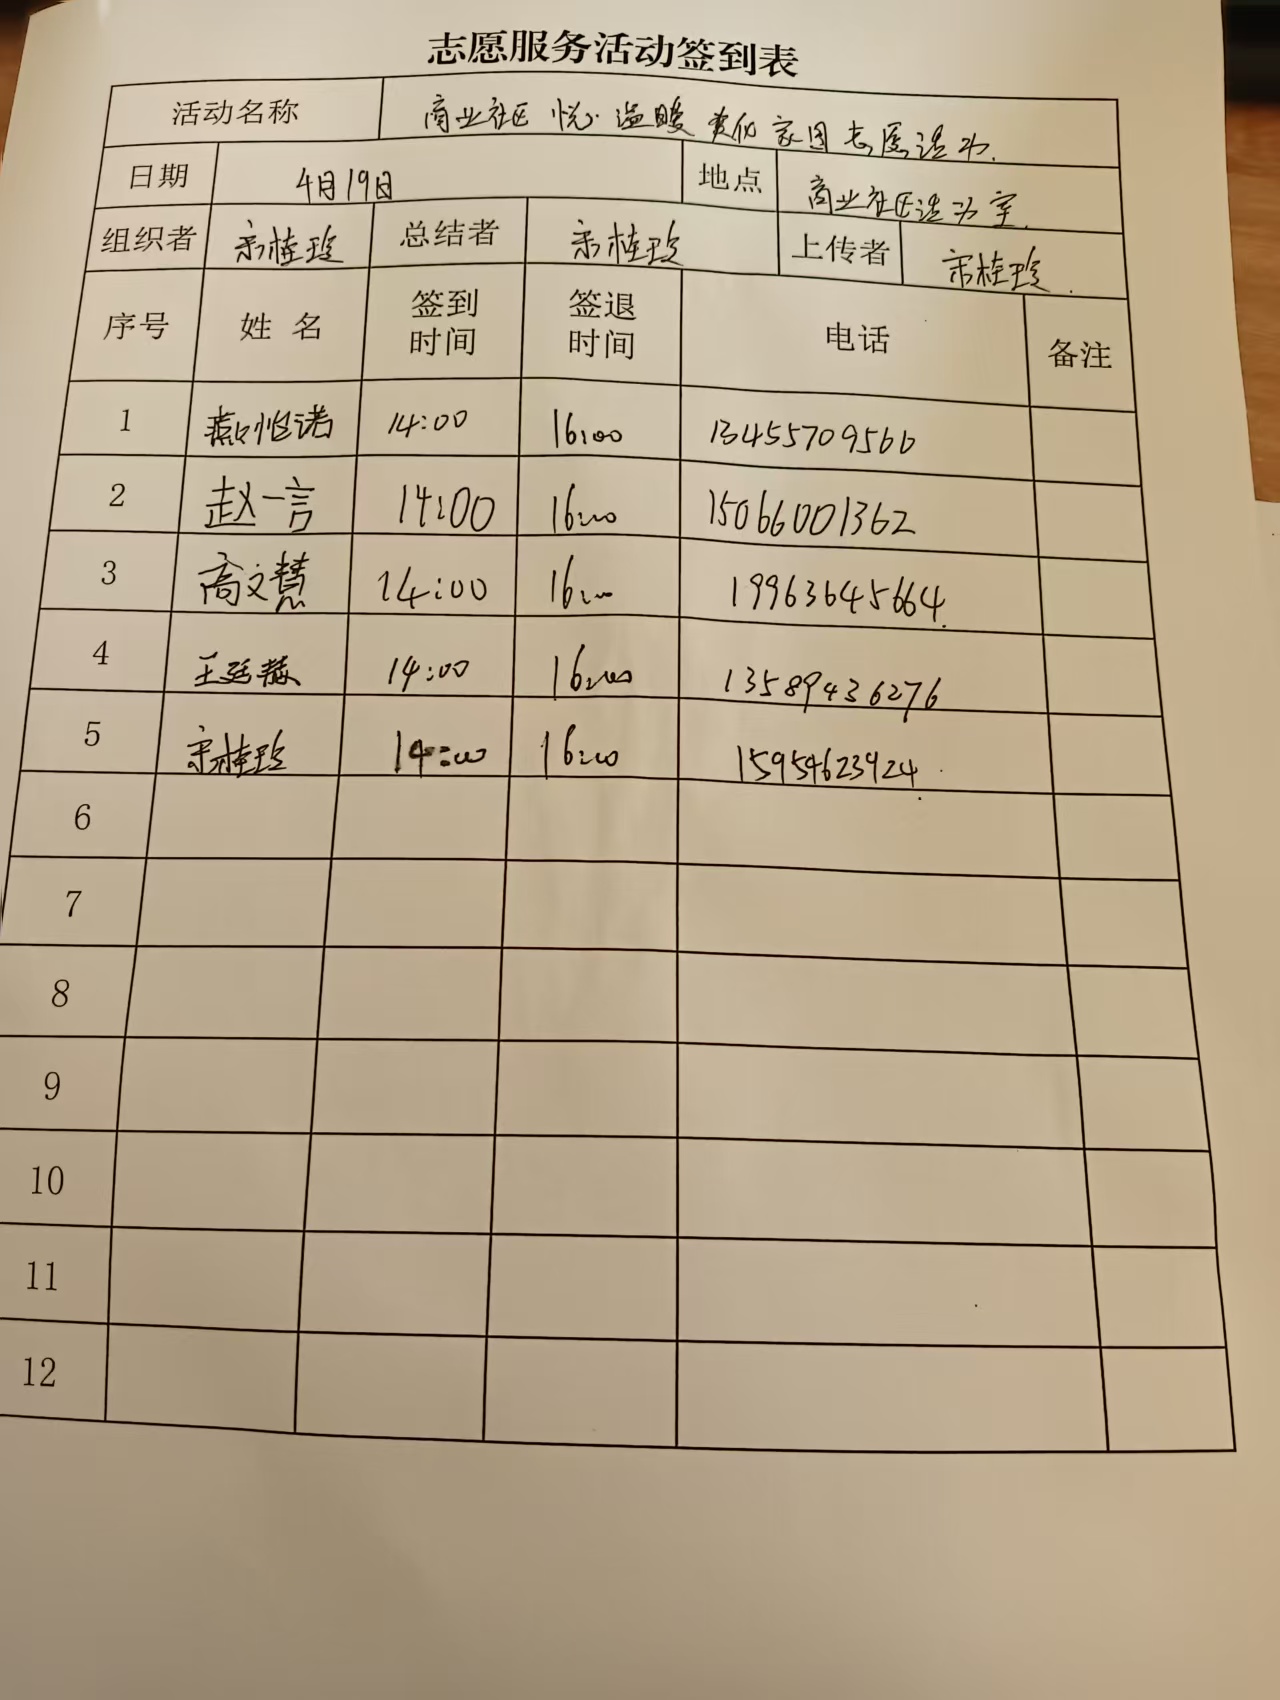 志愿服务活动签到表
活动名称 商业社区 悦 温暖 家园志愿活动.
日期 4月19日 地点 商业社区活动室.
组织者 宋桂玲 总结者 宋桂玲 上传者 宋桂玲.
序号 姓名 签到时间 签退时间 电话 备注
1 14:00 16:00 13455709566
2 赵一言 14:00 16:00 15066001362
3 高文慧 14:00 16:00 19963645664.
4 王廷 14:00 16:00 13589436276
5 宋桂玲 14:00 16:00 15954623924.
6
7
8
9
10
11
12